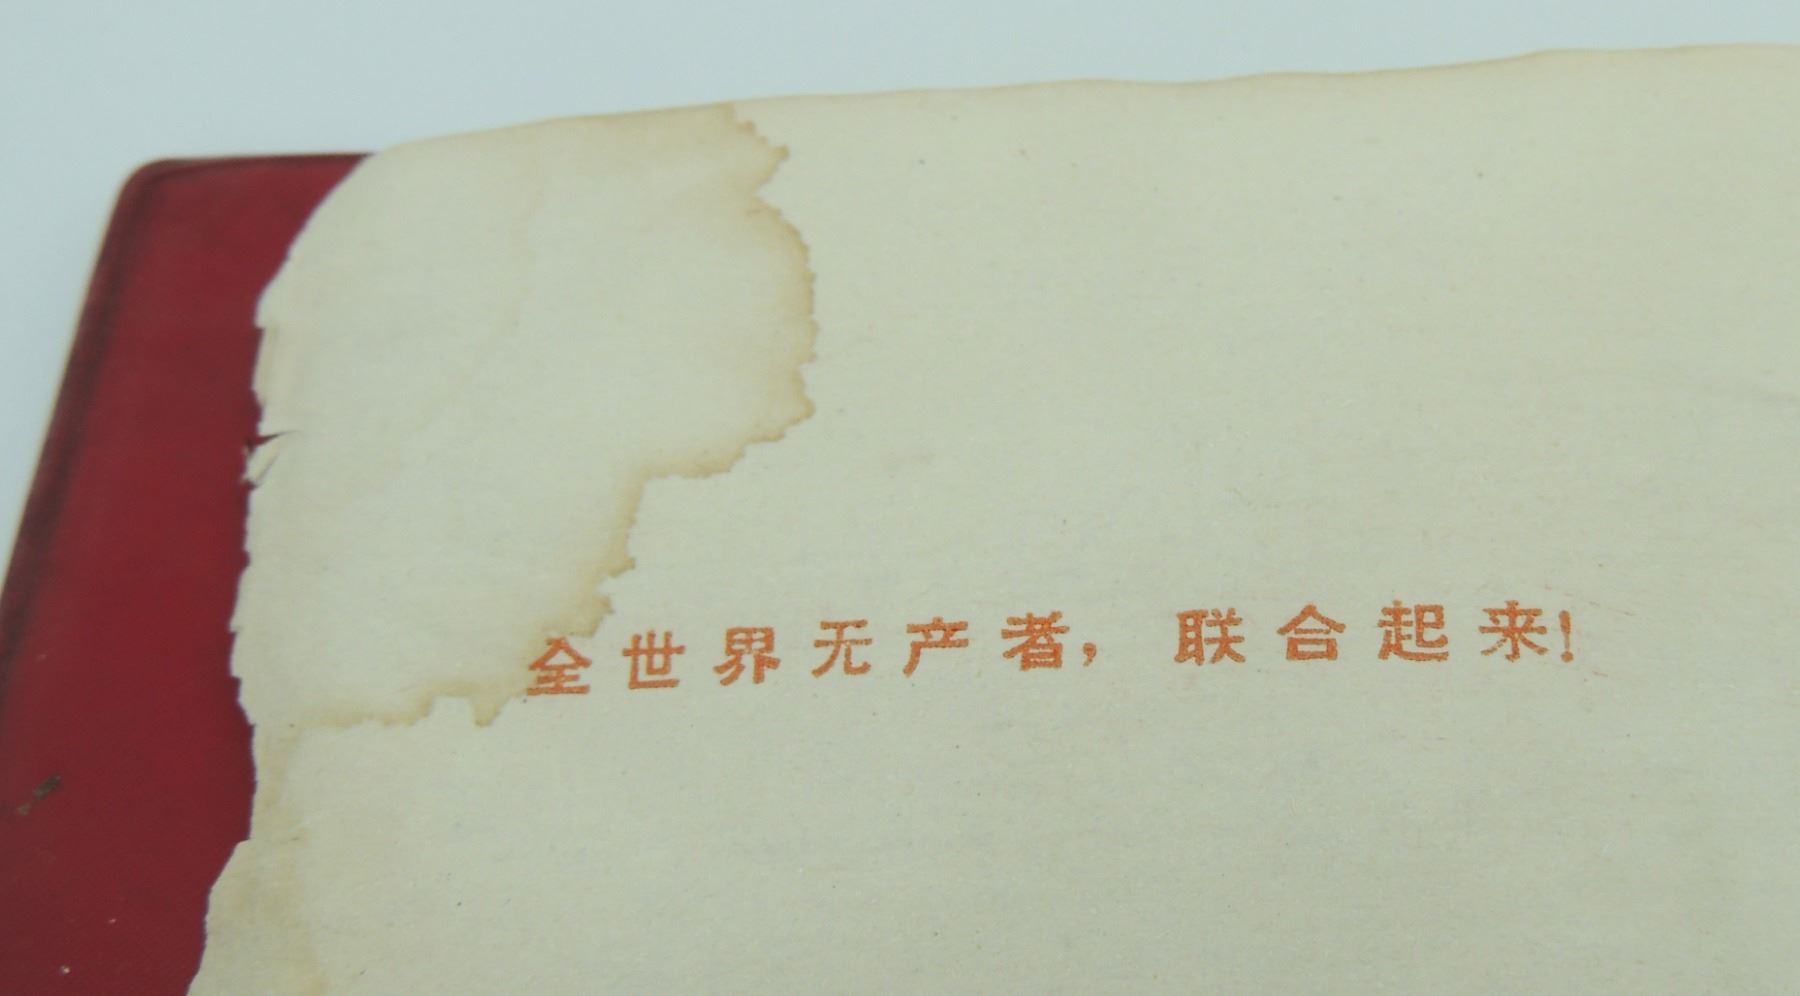 全世界无产者，联合起来！